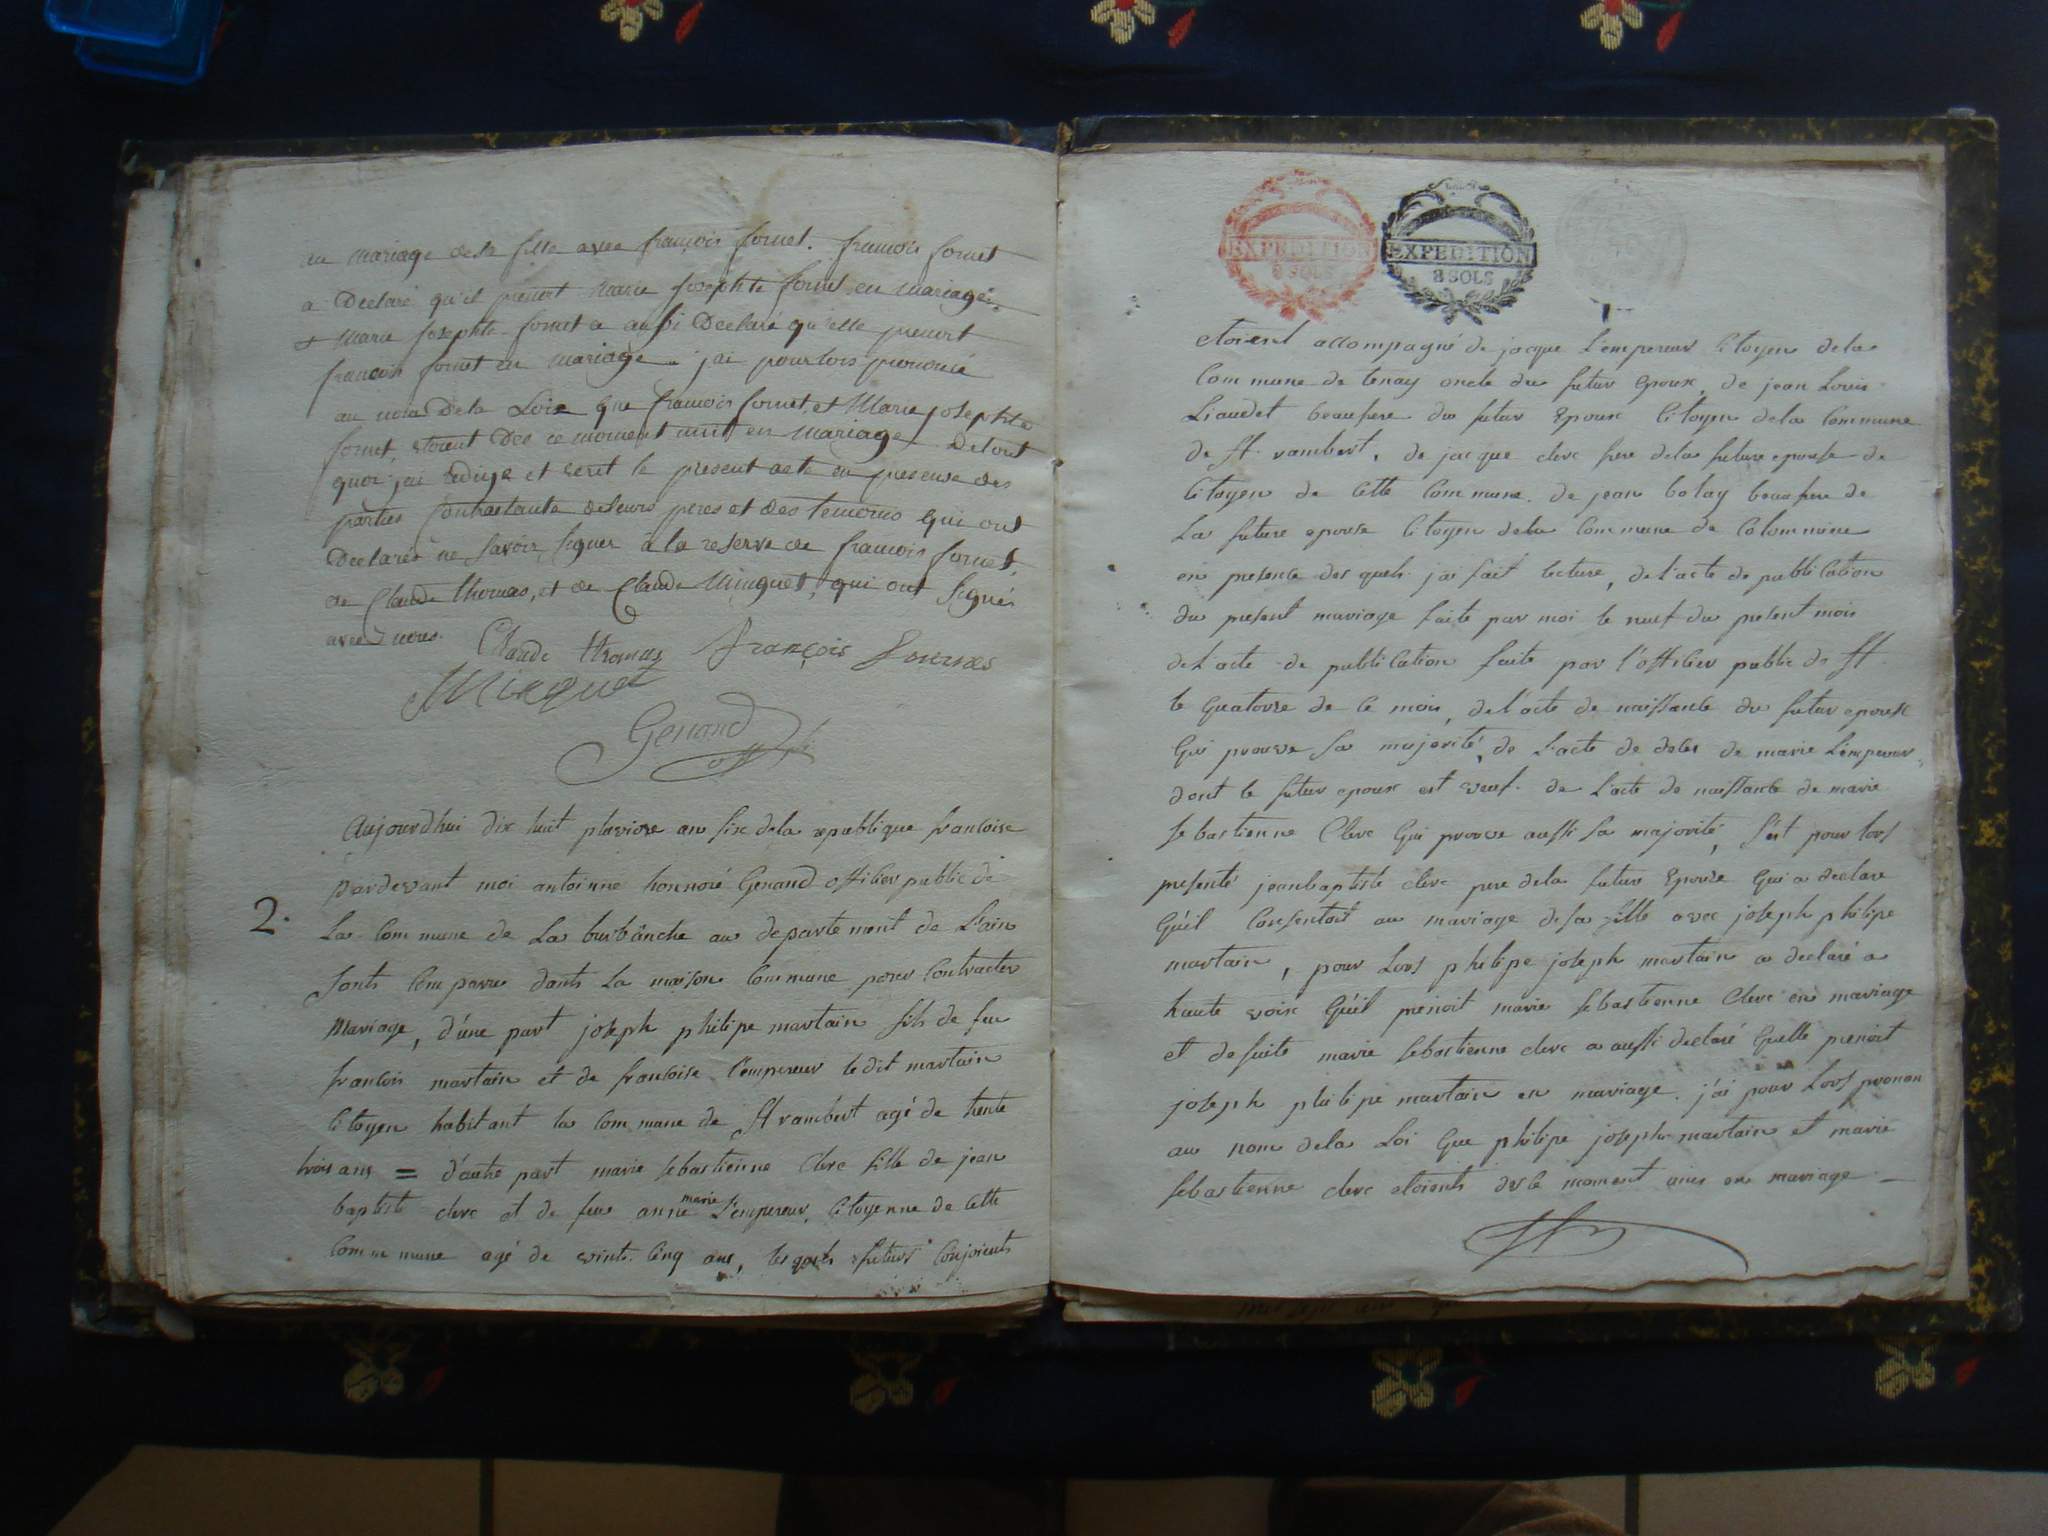 au mariage de sa fille avec françois fornet. françois fornet
a Declaré qu'il prenoit Marie Josephte fornet en mariage,
& Marie Josephte fornet a aussi Declaré qu'elle prenoit
françois fornet en mariage. j'ai pour lors prononcé
au nom De la Loix que françois fornet, et Marie josephte
fornet, etoient Des ce moment unit en mariage. De tout
quoi j'ai redige et ecrit le present acte en presence des
parties contractante de leurs peres et des temoins qui ont
Declarés ne savoir signer a la reserve de françois fornet,
de Claude thomas, et de Claude Minguet, qui ont signés
avec nous.
Claude thomas françois fournes
Minguet
Genand off. p.
Aujourdhui dix huit pluviose an six dela republique francoise
pardevant moi antoinne honnoré Genand officier public de
2. La Commune de La burbanche au departement de L'ain
sonts Comparu dants La maison Commune pour Contracter
Mariage, d'une part joseph philipe martain fils de feu
francois martain et de francoise L'empereur ledit martain
Citoyen habitant la Commune de St rambert agé de trente
trois ans = d'autre part marie sebastienne Clerc fille de jean
baptiste clerc et de feu anne marie L'empereur, Citoyenne de Cette
Commune agé de vinte Cinq ans, lesquels futurs Conjoints
EXPEDITION
8 SOLS
EXPEDITION
8 SOLS
etoient accompagné de jacque L'empereur Citoyen dela
Commune de tenay oncle du futur epoux, de jean Louis
Liaudet beaufrere du futur Epoux Citoyen dela Commune
de St. rambert, de jacque clerc frere dela future epouse
Citoyen de Cette Commune. de jean bolay beaufrere de
La future epouse Citoyen dela Commune de Colommieu
en presence des quels j'ai fait lecture, de l'acte de publication
du present mariage faite par moi le neuf du present mois
de L'acte de publication faite par l'officier public de St.
le quatorze de Ce mois, de l'acte de naissance du futur epoux
Qui prouve sa majorité, de L'acte de deces de marie L'empereur,
dont le futur epoux est veuf. de L'acte de naissance de marie
sebastienne Clerc Qui prouve aussi sa majorité, s'est pour lors
presenté jeanbaptiste clerc pere dela future Epouse Qui a declare
Qu'il Consentoit au mariage de sa fille avec joseph philipe
martain, pour Lors philipe joseph martain a declaré a
haute voix Qu'il prenoit marie sebastienne Clerc en mariage
et de suite marie sebastienne clerc a aussi declaré Quelle prenoit
joseph philipe martain en mariage. j'ai pour Lors pronon
au nom dela Loi Que philipe joseph martain et marie
sebastienne clerc etoients des le moment unis en mariage